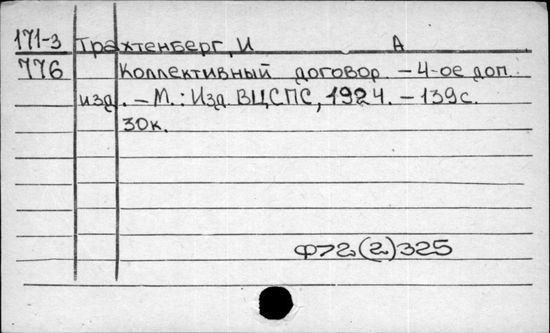 171-3 Трахтенберг, И А
776 Коллективный договор. – 4-ое доп.
изд. – М.: Изд. ВЦСПС, 1924. – 139с.
30к.
Ф72(2)325